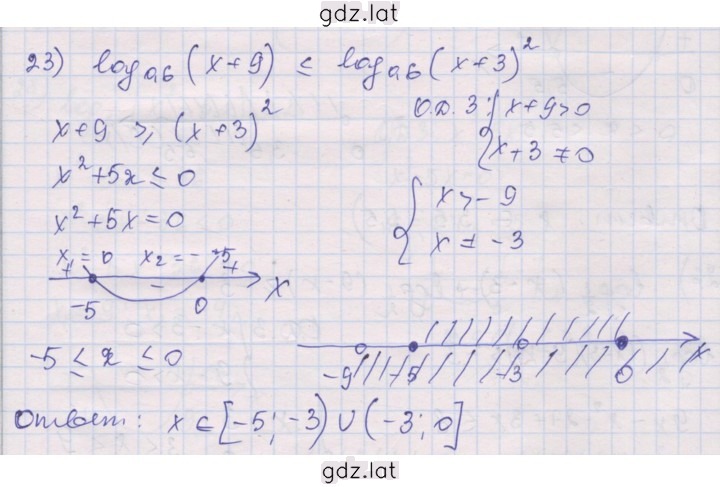 gdz.lat
23) log₀,₆(x+9) ≤ log₀,₆(x+3)²
x+9 ≥ (x+3)²
О.Д.З: { x+9>0
x+3 ≠ 0
x²+5x ≤ 0
x²+5x=0
{ x > -9
x ≠ -3
x₁ = 0 x₂ = -5
+ - + x
-5 0
-5 ≤ x ≤ 0
-9 -5 -3 0 x
Ответ: x ∈ [-5; -3) ∪ (-3; 0]
gdz.lat